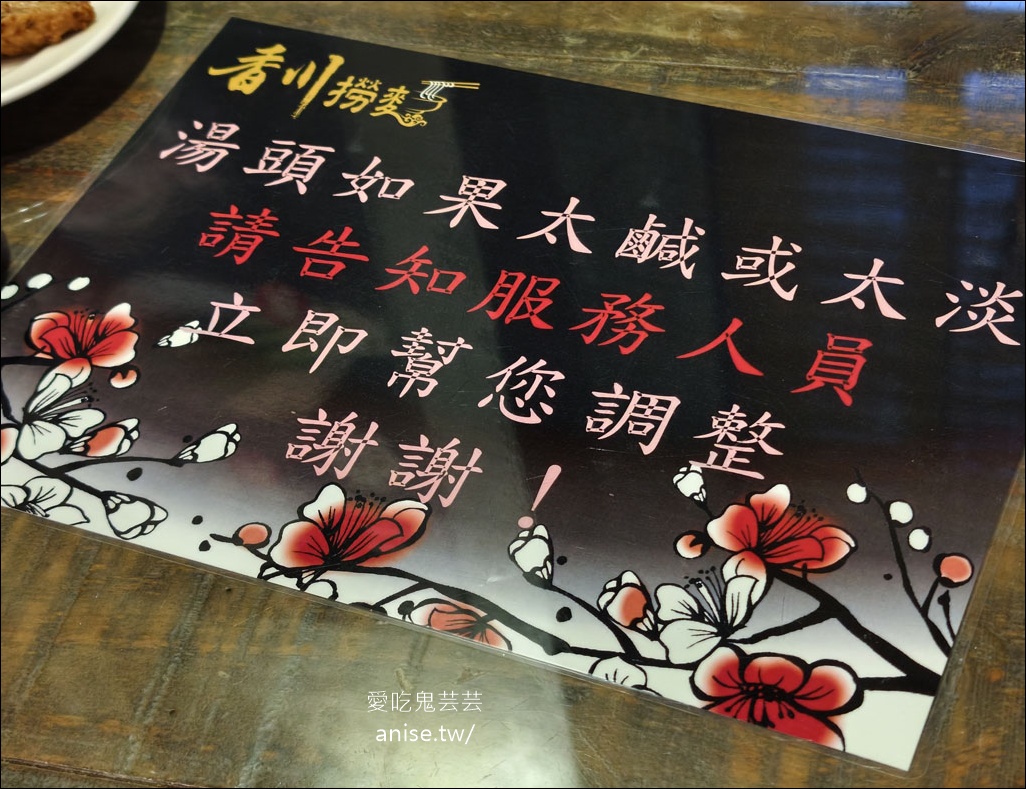 香川撈麥
湯頭如果太鹹或太淡
請告知服務人員
立即幫您調整
謝謝！
愛吃鬼芸芸
anise.tw/